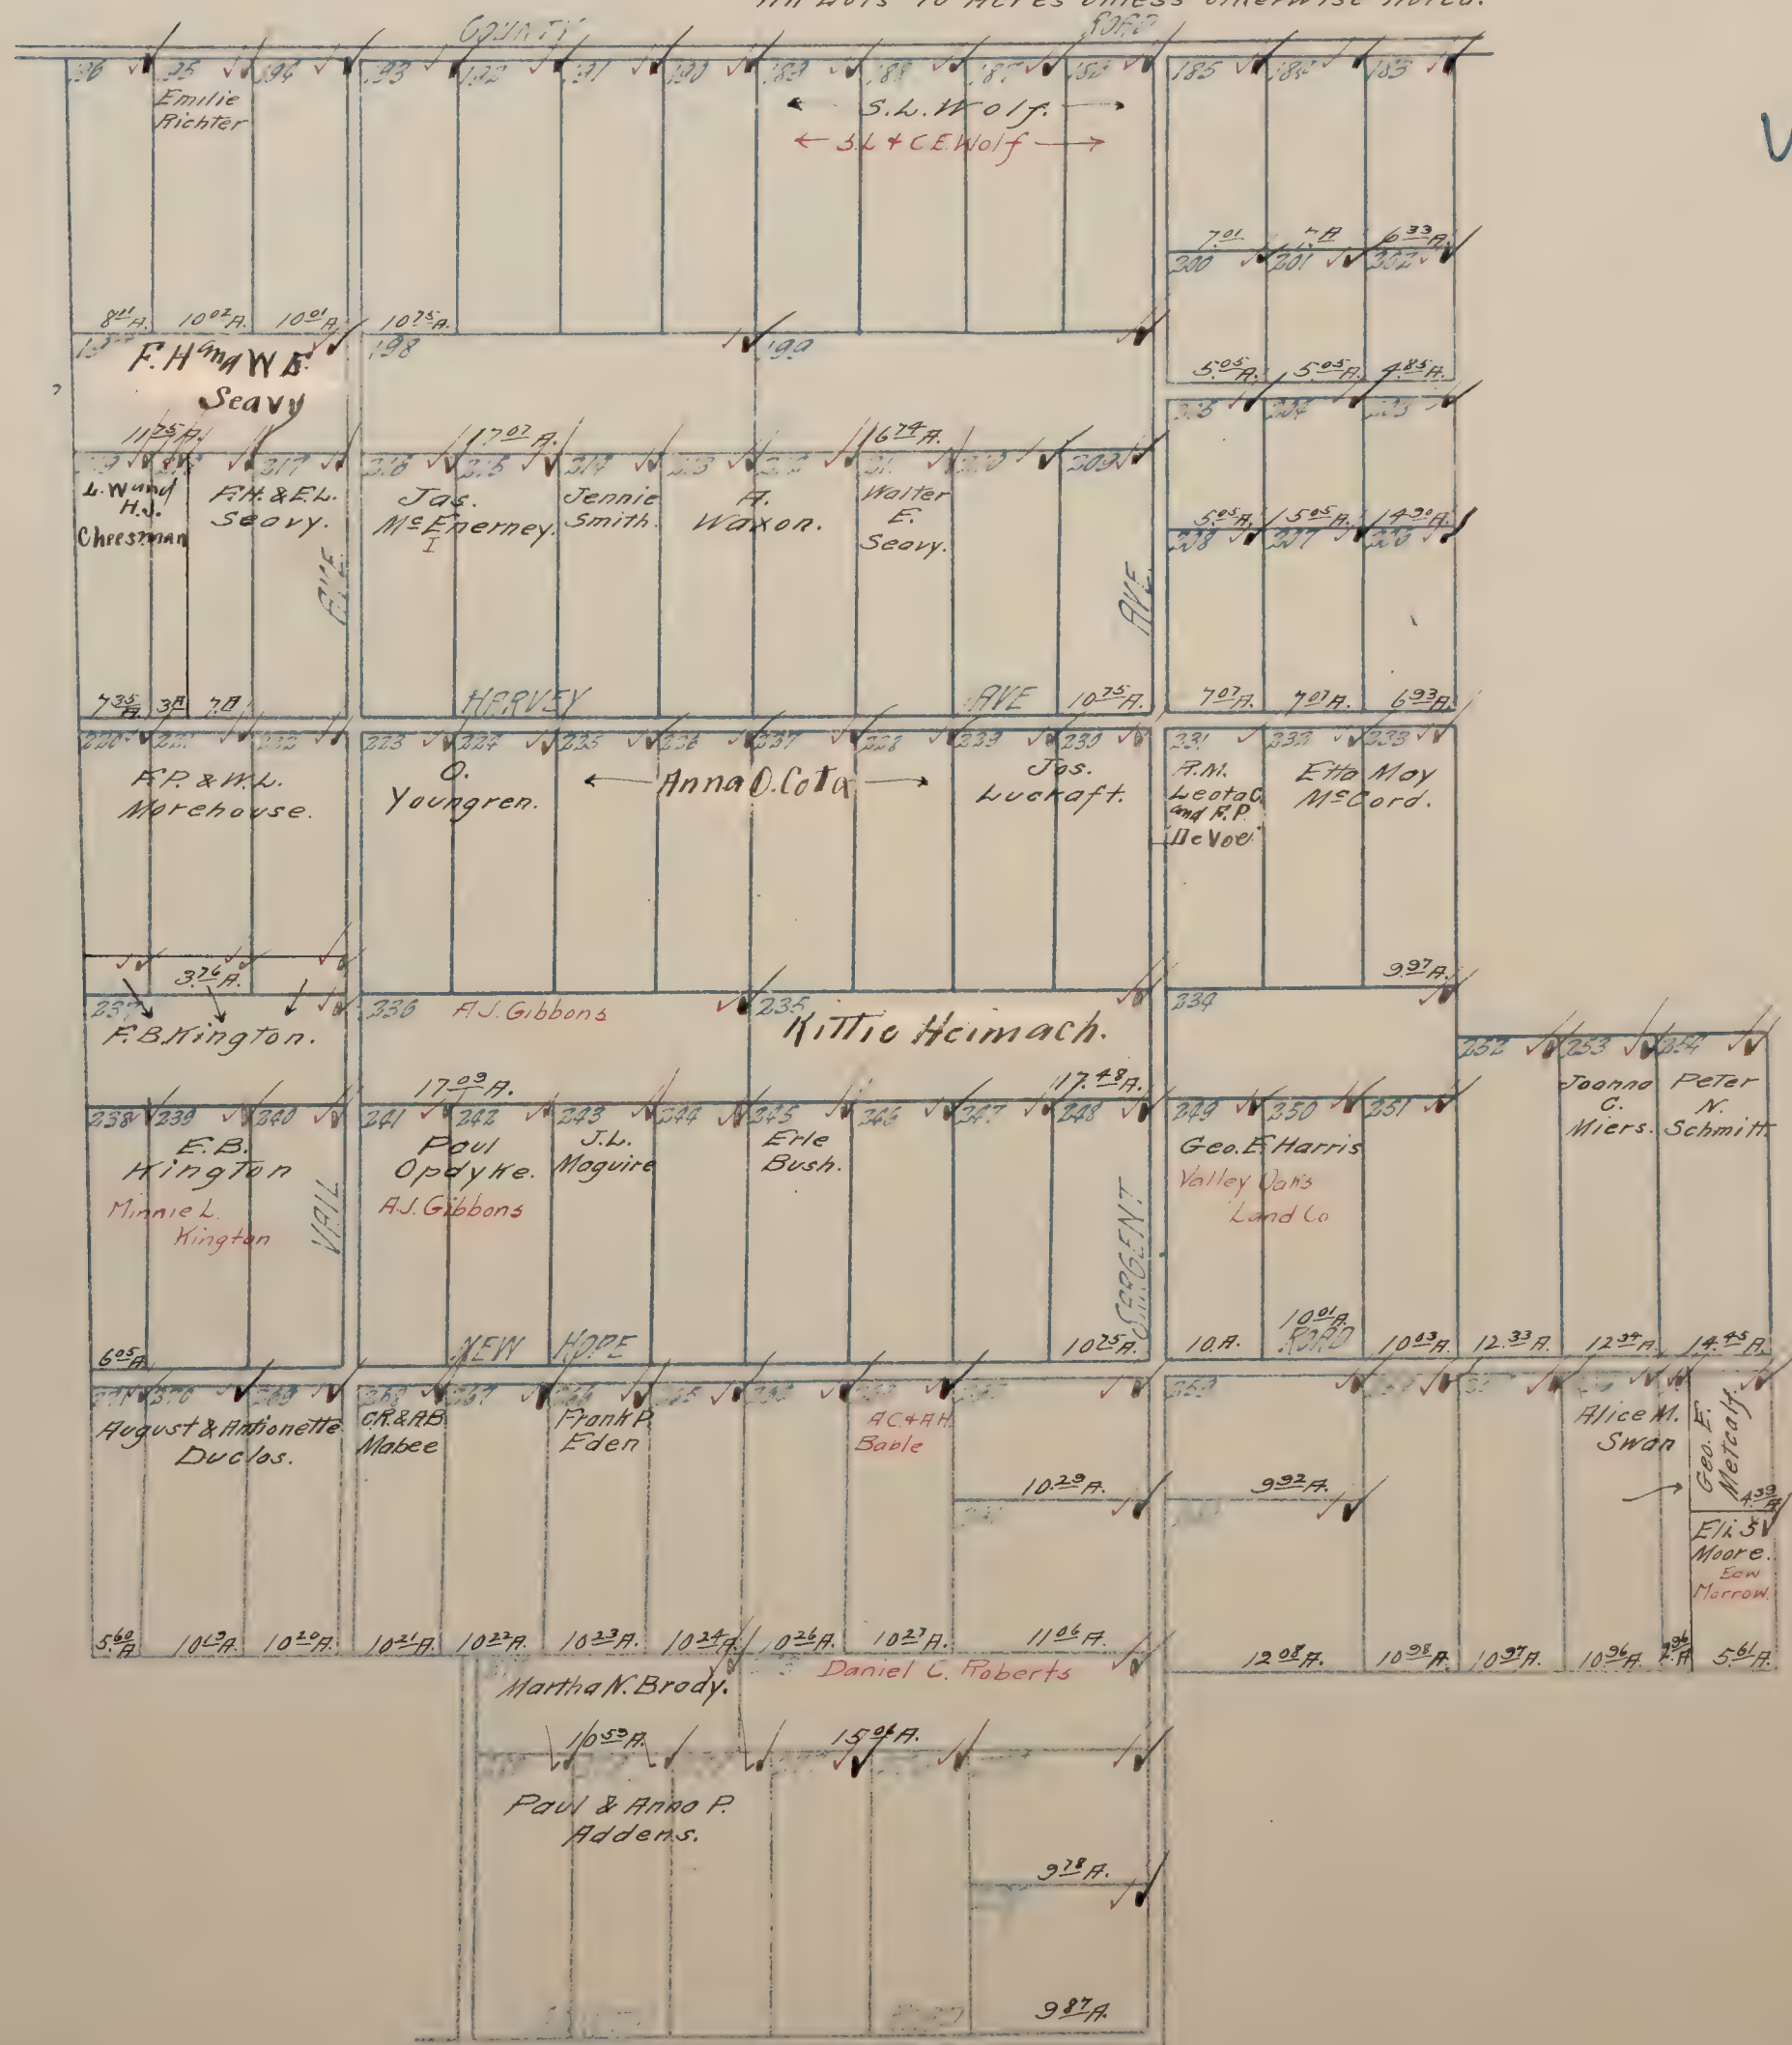 All Lots 10 Acres unless otherwise noted.
COUNTY ROAD
196 195 194 193 192 191 190 189 188 187 186 185 184 183
Emilie
Richter
S.L. Wolf.
S.L & C.E. Wolf
7.01 7.A 6.33 A.
200 201 202
8.11 A. 10.02 A. 10.01 A. 10.75 A.
198 199
F.H and W E
Seavy
5.05 A. 5.05 A. 4.85 A.
205 204 203
11.75 A. 17.07 A. 16.74 A.
217 216 215 214 213 212 211 210 209
L.W and
H.J.
Cheesman
F.H. & E.L.
Seavy.
Jas.
McEnerney.
I
Jennie
Smith.
A.
Waxon.
Walter
E.
Seavy.
5.05 A. 5.05 A. 14.90 A.
208 207 206
AVE
AVE
7.35 A. 3 A 7. A
HARVEY AVE
10.75 A. 7.07 A. 7.07 A. 6.93 A.
220 221 222 223 224 225 226 227 228 229 230 231 232 233
F.P. & W.L.
Morehouse.
O.
Youngren.
Anna O. Cota
Jos.
Luckaft.
R.M.
Leota C
and F.P.
DeVoe
Etta May
McCord.
3.76 A.
9.97 A.
237 236 235 234
F.B. Kington.
A.J. Gibbons
Kittie Heimach.
17.09 A. 17.48 A.
252 253 254
Joanna
C.
Miers.
Peter
N.
Schmitt
238 239 240 241 242 243 244 245 246 247 248 249 250 251
E.B.
Kington
Minnie L.
Kington
Paul
Opdyke.
A.J. Gibbons
J.L.
Maguire
Erle
Bush.
Geo. E. Harris
Valley Oaks
Land Co
VAIL
SARGENT
6.05 A
NEW HOPE ROAD
10.75 A. 10.A. 10.01 A. 10.03 A. 12.33 A. 12.34 A. 14.45 A.
271 270 269 268 267 266 265
August & Antionette
Duclos.
C.R. & A.B.
Mabee
Frank P.
Eden
A C. & A H.
Bable
Alice M.
Swan
Geo. E.
Metcalf.
4.39 A
10.29 A. 9.92 A.
Eli S
Moore.
Edw
Morrow.
5.60 A 10.19 A. 10.20 A. 10.21 A. 10.22 A. 10.23 A. 10.24 A. 10.26 A. 10.27 A. 11.06 A. 12.08 A. 10.98 A. 10.97 A. 10.96 A. 5.61 A.
Martha N. Brady.
Daniel C. Roberts
10.59 A. 15.04 A.
Paul & Anna P.
Addens.
9.78 A.
9.87 A.